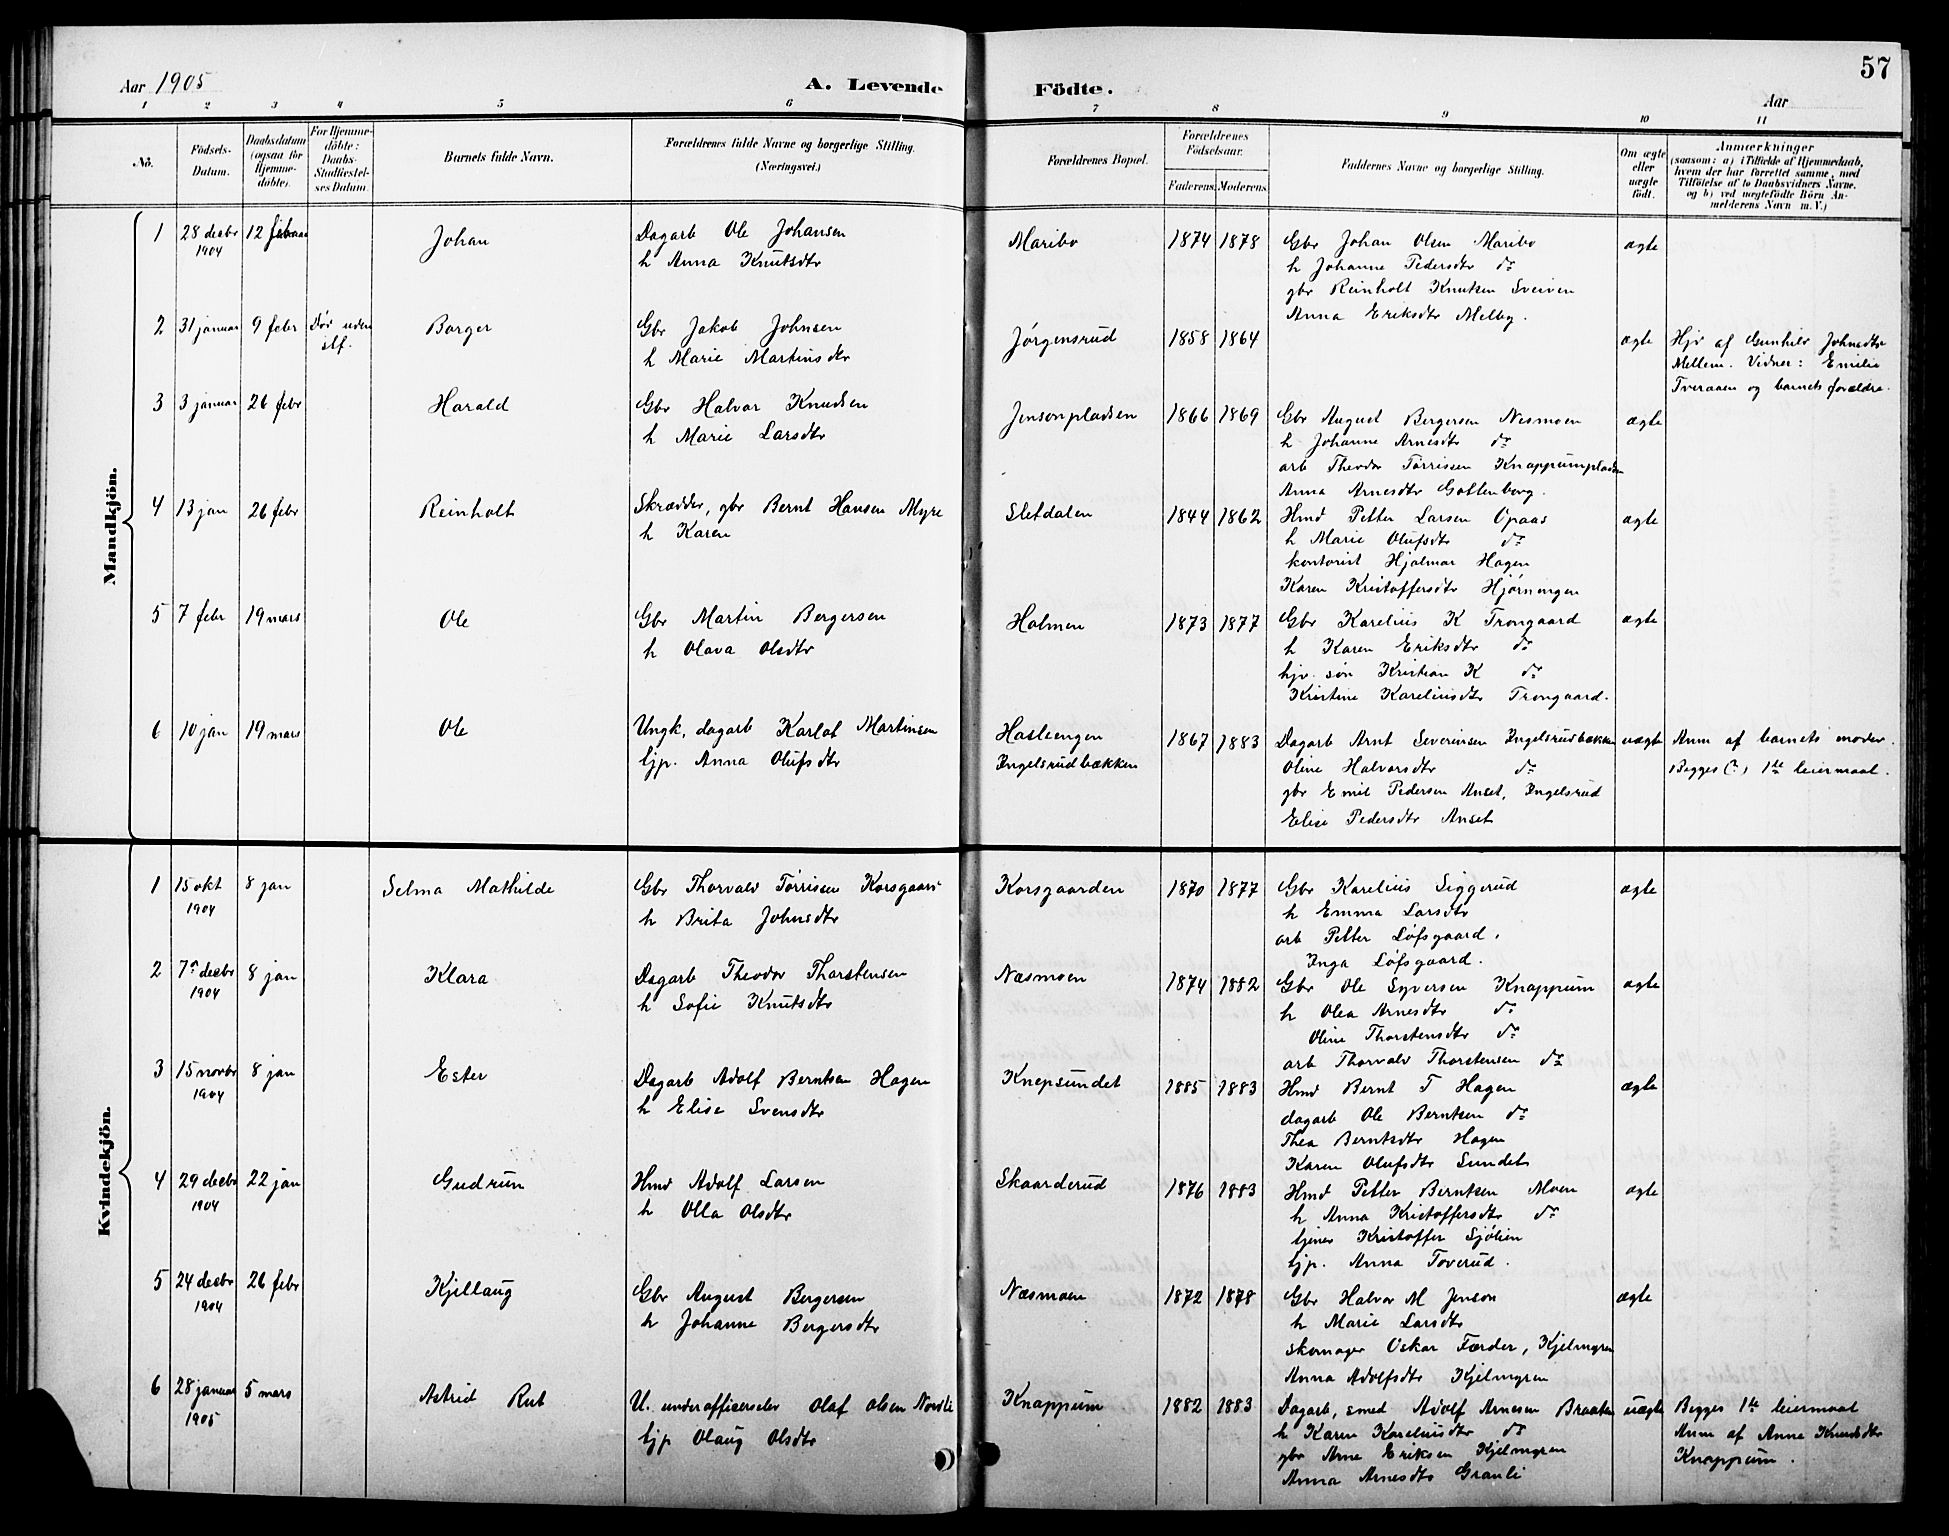 57
Aar 1905
A. Levende Födte.
Aar
1 2 3 4 5 6 7 8 9 10 11
Nö.
Födsels-Datum.
Daabsdatum (ogsaa for Hjemme-döbte).
For Hjemme-döbte: Daabs-Stadfæstel-ses Datum.
Barnets fulde Navn.
Forældrenes fulde Navne og borgerlige Stilling. (Næringsvei.)
Forældrenes Bopæl.
Forældrenes Födselsaar.
Faderens. Moderens.
Faddernes Navne og borgerlige Stilling.
Om ægte eller uægte födt.
Anmærkninger
(saasom: a) i Tilfælde af Hjemmedaab, hvem der har forrettet samme, med Tilföielse af to Daabsvidners Navne, og b) ved uægtefödte Börn An-melderens Navn m. V.)
Mandkjön.
1 28 decbr 1904 12 februar Johan
Dagarb Ole Johansen
h Anna Knutsdtr
Maribo 1874 1878
Gbr Johan Olsen Maribo
h Johanne Pedersdtr do
gbr Reinholt Knutsen Sveiven
Anna Eriksdtr Melby.
ægte
2 31 januar 9 febr Dør uden stf. Borger
Gbr Jakob Johnsen
h Marie Martinsdtr
Jørgensrud 1858 1864
ægte
Hjv af Gunhild Johnsdtr
Mellem. Vidner: Emilie
Tveraaen og barnets forældre.
3 3 januar 26 febr Harald
Gbr Halvor Knudsen
h Marie Larsdtr
Jensonpladsen 1866 1869
Gbr August Bergersen Nesmoen
h Johanne Arnesdtr do
arb Theodor Tørrissen Knappumpladsen
Anna Arnesdtr Gottenborg.
ægte
4 13 jan 26 febr Reinholt
Skrædder, gbr Bernt Hansen Myre
h Karen
Sletdalen 1844 1862
Hmd Petter Larsen Opaas
h Marie Olufsdtr do
kontorist Hjalmar Hagen
Karen Kristoffersdtr Hjørningen
ægte
5 7 febr 19 mars Ole
Gbr Martin Bergersen
h Olava Olsdtr
Holmen 1873 1877
Gbr Karelius K Trongaard
h Karen Eriksdtr do
hjv. søn Kristian K do
Kristine Kareliusdtr Trongaard.
ægte
6 10 jan 19 mars Ole
Ungk, dagarb Karlot Martinsen
tjp. Anna Olufsdtr
Hasleengen
Ingelsrudbækken
1867 1883
Dagarb Arnt Severinsen Ingelsrudbækken
Oline Halvorsdtr do
gbr Emil Pedersen Anset, Ingelsrud
Elise Pedersdtr Anset
uægte
Anm af barnets moder.
Begges (?) 1te leiermaal.
Kvindekjön.
1 15 okt 1904 8 jan Selma Mathilde
Gbr Thorvald Tørrisen Korsgaard
h Brita Johnsdtr
Korsgaarden 1870 1877
Gbr Karelius Siggerud
h Emma Larsdtr
arb Petter Løfsgaard.
Inga Løfsgaard.
ægte
2 7de decbr 1904 8 jan Klara
Dagarb Theodor Thorstensen
h Sofie Knutsdtr
Næsmoen 1874 1882
Gbr Ole Syversen Knappum
h Olea Arnesdtr do
Oline Thorstensdtr do
arb Thorvald Thorstensen do
ægte
3 15 novbr 1904 8 jan Ester
Dagarb Adolf Berntsen Hagen
h Elise Svensdtr
Knepsundet 1885 1883
Hmd Bernt T Hagen
dagarb Ole Berntsen do
Thea Berntsdtr Hagen
Karen Olufsdtr Sundet
ægte
4 29 decbr 1904 22 jan Gudrun
Hmd Adolf Larsen
h Olla Olsdtr
Skaarderud 1876 1883
Hmd Petter Berntsen Moen
h Anna Kristoffersdtr do
tjener Kristoffer Sjølien
tjp. Anna Toverud.
ægte
5 24 decbr 1904 26 febr Kjellaug
Gbr August Bergersen
h Johanne Bergersdtr
Næsmoen 1872 1878
Gbr Halvor M Jenson
h Marie Larsdtr
skomager Oskar Færder, Kjelmyren
Anna Adolfsdtr Kjelmyren
ægte
6 28 januar 1905 5 mars Astrid Rut
U. underofficerselev Olaf Olsen Nordli
tjp Olaug Olsdtr
Knappum 1882 1883
Dagarb, smed Adolf Arnesen Braaten
h Karen Kareliusdtr do
gbr Arne Eriksen Kjelmyren
Anna Arnesdtr Granli
uægte
Begges 1te leiermaal
Anm af Anne Knudsdtr
Knappum.